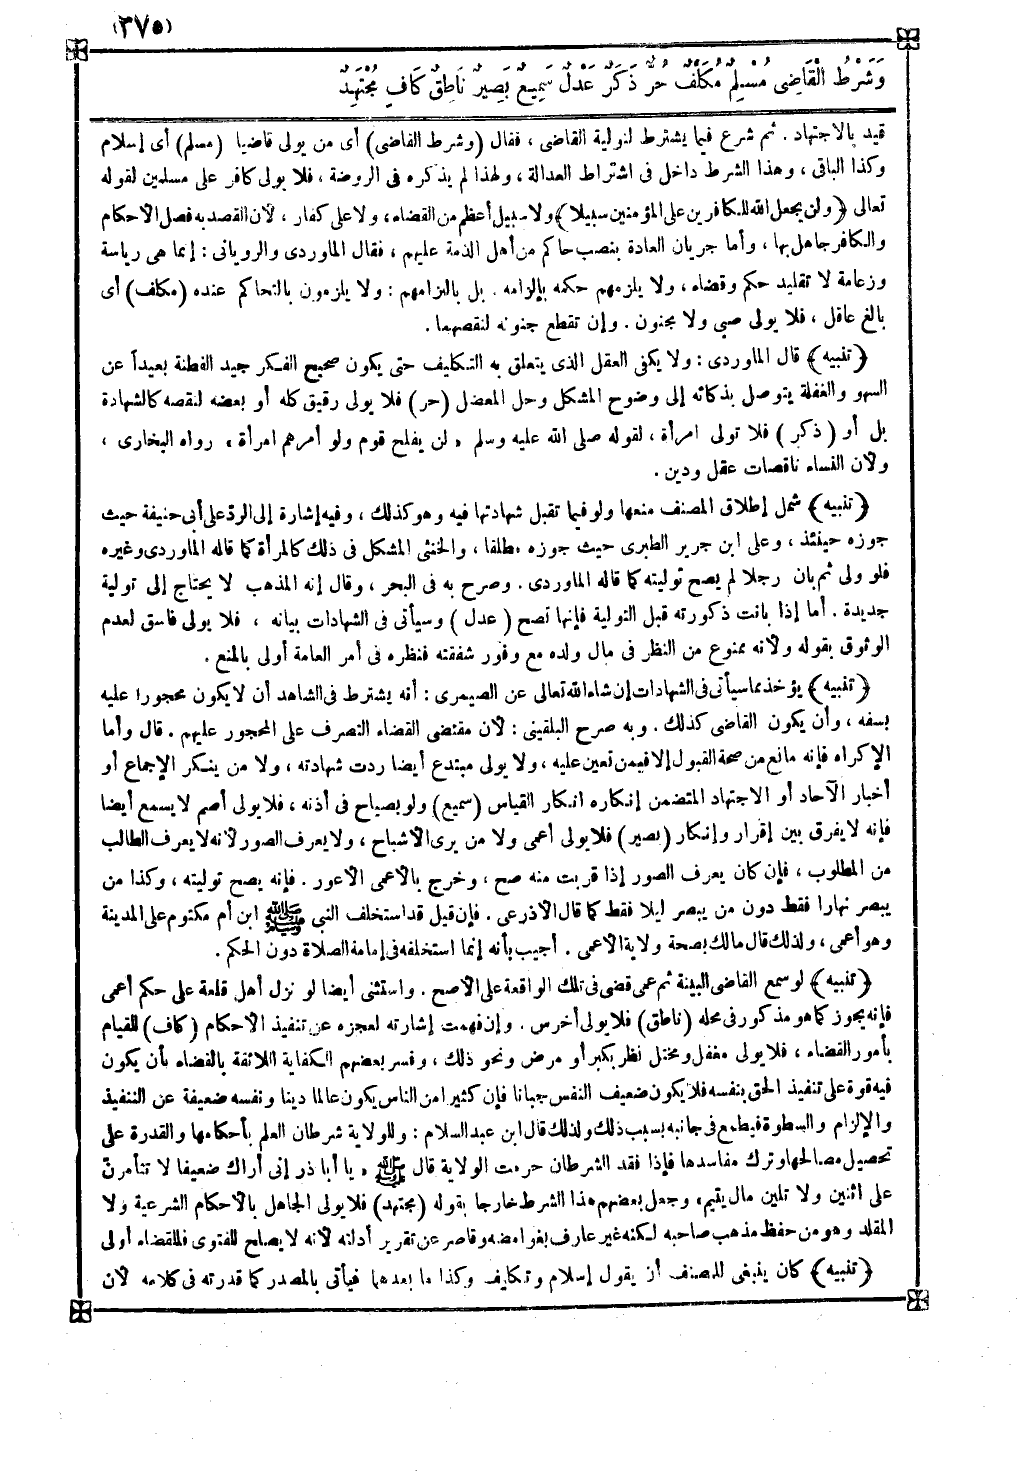 (٣٧٥)
وَشَرْطُ الْقَاضِى مُسْلِمٌ مُكَلَّفٌ حُرٌّ ذَكَرٌ عَدْلٌ سَمِيعٌ بَصِيرٌ نَاطِقٌ كَافٍ مُجْتَهِدٌ
قيد بالاجتهاد . ثم شرع فيما يشترط لتولية القاضى ، فقال (وشرط القاضى) أى من يولى قاضيا (مسلم) أى إسلام
وكذا الباقى ، وهذا الشرط داخل فى اشتراط العدالة ، ولهذا لم يذكره فى الروضة ، فلا يولى كافر على مسلمين لقوله
تعالى ﴿ولن يجعل الله للكافرين على المؤمنين سبيلا﴾ ولا سبيل أعظم من القضاء ، ولا على كفار ، لأن القصد به فصل الأحكام
والكافر جاهل بها ، وأما جريان العادة بنصب حاكم من أهل الذمة عليهم ، فقال الماوردى والرويانى : إنما هى رياسة
وزعامة لا تقليد حكم وقضاء ، ولا يلزمهم حكمه بإلزامه . بل بالتزامهم : ولا يلزمون بالتحاكم عنده (مكلف) أى
بالغ عاقل ، فلا يولى صبى ولا مجنون . وإن تقطع جنونه لنقصهما .
﴿تنبيه﴾ قال الماوردى : ولا يكفى العقل الذى يتعلق به التكليف حتى يكون صحيح الفكر جيد الفطنة بعيداً عن
السهو والغفلة يتوصل بذكائه إلى وضوح المشكل وحل المعضل (حر) فلا يولى رقيق كله أو بعضه لنقصه كالشهادة
بل أو ( ذكر ) فلا تولى امرأة ، لقوله صلى الله عليه وسلم « لن يفلح قوم ولو أمرهم امرأة » رواه البخارى ،
ولأن النساء ناقصات عقل ودين .
﴿تنبيه﴾ شمل إطلاق المصنف منعها ولو فيما تقبل شهادتها فيه وهو كذلك ، وفيه إشارة إلى الرد على أبى حنيفة حيث
جوزه حينئذ ، وعلى ابن جرير الطبرى حيث جوزه مطلقا ، والخنثى المشكل فى ذلك كالمرأة كما قاله الماوردى وغيره
فلو ولى ثم بان رجلا لم يصح توليته كما قاله الماوردى . وصرح به فى البحر ، وقال إنه المذهب لا يحتاج إلى تولية
جديدة . أما إذا بانت ذكورته قبل التولية فإنها تصح ( عدل ) وسيأتى فى الشهادات بيانه ، فلا يولى فاسق لعدم
الوثوق بقوله ولأنه ممنوع من النظر فى مال ولده مع وفور شفقته فنظره فى أمر العامة أولى بالمنع .
﴿تنبيه﴾ يؤخذ مما سيأتى فى الشهادات إن شاء الله تعالى عن الصيمرى : أنه يشترط فى الشاهد أن لا يكون محجورا عليه
بسفه ، وأن يكون القاضى كذلك . وبه صرح البلقينى : لأن مقتضى القضاء التصرف على المحجور عليهم . قال وأما
الإكراه فإنه مانع من صحة القبول إلا فيمن تعين عليه ، ولا يولى مبتدع أيضا ردت شهادته ، ولا من ينكر الإجماع أو
أخبار الآحاد أو الاجتهاد المتضمن إنكاره انكار القياس (سميع) ولو بصياح فى أذنه ، فلا يولى أصم لا يسمع أيضا
فإنه لا يفرق بين إقرار وإنكار (بصير) فلا يولى أعمى ولا من يرى الأشباح ، ولا يعرف الصور لأنه لا يعرف الطالب
من المطلوب ، فإن كان يعرف الصور إذا قربت منه صح ، وخرج بالأعمى الأعور . فإنه يصح توليته ، وكذا من
يبصر نهارا فقط دون من يبصر ليلا فقط كما قال الأذرعى . فإن قيل قد استخلف النبى ﷺ ابن أم مكتوم على المدينة
وهو أعمى ، ولذلك قال مالك بصحة ولاية الأعمى . أجيب بأنه إنما استخلفه فى إمامة الصلاة دون الحكم .
﴿تنبيه﴾ لو سمع القاضى البينة ثم عمى قضى فى تلك الواقعة على الأصح . واستثنى أيضا لو نزل أهل قلعة على حكم أعمى
فإنه يجوز كما هو مذكور فى محله (ناطق) فلا يولى أخرس . وإن فهمت إشارته لعجزه عن تنفيذ الأحكام (كاف) للقيام
بأمور القضاء ، فلا يولى مغفل ومختل نظر بكبر أو مرض ونحو ذلك ، وفسر بعضهم الكفاية اللائقة بالقضاء بأن يكون
فيه قوة على تنفيذ الحق بنفسه فلا يكون ضعيف النفس جبانا فإن كثيرا من الناس يكون عالما دينا ونفسه ضعيفة عن التنفيذ
والإلزام والسطوة فيطمع فى جانبه بسبب ذلك ولذلك قال ابن عبد السلام : وللولاية شرطان العلم بأحكامها والقدرة على
تحصيل مصالحها وترك مفاسدها فإذا فقد الشرطان حرمت الولاية قال ﷺ « يا أبا ذر إنى أراك ضعيفا لا تتأمرنّ
على اثنين ولا تلين مال يتيم » وجعل بعضهم هذا الشرط خارجا بقوله (مجتهد) فلا يولى الجاهل بالأحكام الشرعية ولا
المقلد وهو من حفظ مذهب صاحبه لكنه غير عارف بغوامضه وقاصر عن تقرير أدلته لأنه لا يصلح للفتوى فللقضاء أولى
﴿تنبيه﴾ كان ينبغى للمصنف أن يقول إسلام وتكليف وكذا ما بعدهما فيأتى بالمصدر كما قدرته فى كلامه لأن